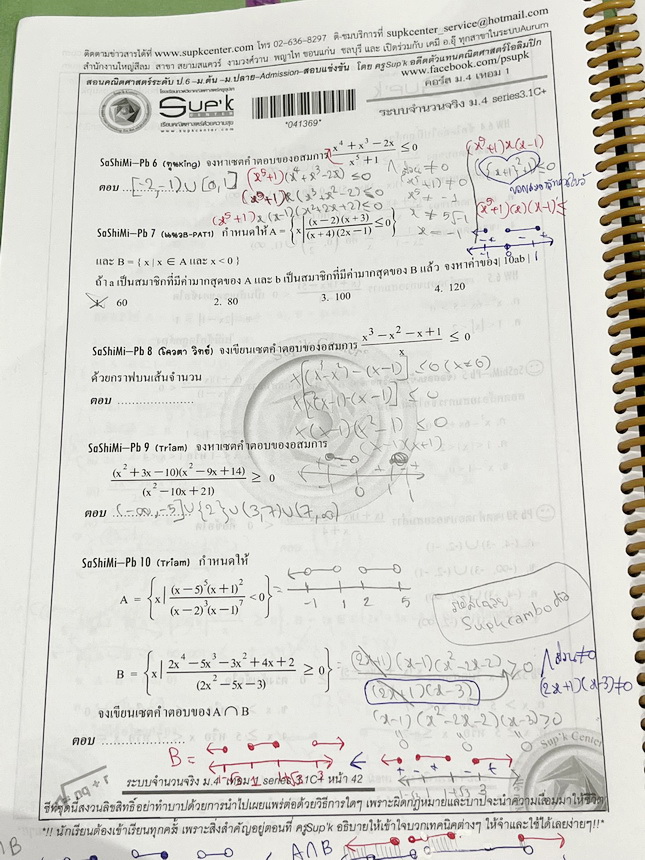 ติดตามข่าวสารได้ที่ www.supkcenter.com โทร 02-636-8297 ติ-ชมบริการที่ supkcenter_service@hotmail.com
สำนักงานใหญ่สีลม สาขา สยามสแควร์ งามวงศ์วาน พญาไท ขอนแก่น ชลบุรี และ เปิดร่วมกับ เคมี อ.อุ๊ ทุกสาขาในระบบAurum
สอนคณิตศาสตร์ระดับ ป.6-ม.ต้น-ม.ปลาย-Admission-สอบแข่งขัน โดย ครูSup'k อดีตตัวแทนคณิตศาสตร์โอลิมปิก
www.facebook.com/psupk
คอร์ส ม.4 เทอม 1
Sup'k
CENTER
เรียนคณิตศาสตร์ด้วยความสุข
www.supkcenter.com
*041369*
ระบบจำนวนจริง ม.4 series3.1C+
SaShiMi-Pb 6 (ทุนKing) จงหาเซตคำตอบของอสมการ (x⁴ + x³ − 2x)/(x⁵ + 1) ≤ 0
ตอบ [-2,-1) ∪ [0,1]
(x⁵+1)(x⁴+x³-2x) ≤ 0
(x⁵+1)x(x³+x²-2) ≤ 0
(x⁵+1)x(x-1)(x²+2x+2) ≤ 0
ส่วน ≠ 0
x⁵ ≠ -1
x ≠ ⁵√-1
x = -1
(x⁵+1)x(x-1)
(x⁵+1)(x)(x-1) ≤
SaShiMi-Pb 7 (แนวB-PAT1) กำหนดให้ A = {x | (x − 2)(x + 3)/((x + 4)(2x − 1)) ≤ 0}
และ B = { x | x ∈ A และ x < 0 }
ถ้า a เป็นสมาชิกที่มีค่ามากสุดของ A และ b เป็นสมาชิกที่มีค่ามากสุดของ B แล้ว จงหาค่าของ | 10ab |
1. 60 2. 80 3. 100 4. 120
SaShiMi-Pb 8 (โควตา วิทย์) จงเขียนเซตคำตอบของอสมการ (x³ − x² − x + 1)/x ≤ 0
ด้วยกราฟบนเส้นจำนวน
ตอบ
x[(x³-x²)-(x-1)] ≤ 0 (x≠0)
x[x²(x-1)-(x-1)] ≤ 0
x(x-1)(x²-1) ≤ 0
(x-1)(x+1)
-1 0 1
SaShiMi-Pb 9 (Triam) จงหาเซตคำตอบของอสมการ
(x² + 3x − 10)(x² − 9x + 14)/(x² − 10x + 21) ≥ 0
ตอบ (-∞,-5] ∪ {2} ∪ (3,7) ∪ (7,∞)
SaShiMi-Pb 10 (Triam) กำหนดให้
A = {x | (x − 5)⁵(x + 1)²/((x − 2)³(x − 1)⁷) < 0} =
-1 1 2 5
Supkcambodia
B = {x | (2x⁴ − 5x³ − 3x² + 4x + 2)/(2x² − 5x − 3) ≥ 0} = (2x+1)(x-1)(x²-2x-2)/((2x+1)(x-3)) ≥ 0
ส่วน ≠ 0
(2x+1)(x-3) ≠ 0
(x-1)(x²-2x-2)(x-3) ≥ 0
จงเขียนเซตคำตอบของ A ∩ B
ตอบ
B =
ระบบจำนวนจริง ม.4 เทอม 1 series 3.1C+ หน้า 42
ชีทชุดนี้สงวนลิขสิทธิ์ อย่าทำบาปด้วยการนำไปเผยแพร่ต่อด้วยวิธีการใดๆ เพราะผิดกฎหมายและบาปจะนำความเสื่อมมาให้ชีวิต
*!! นักเรียนต้องเข้าเรียนทุกครั้ง เพราะสิ่งสำคัญอยู่ตอนที่ ครูSup'k อธิบายให้เข้าใจบวกเทคนิคต่างๆ ให้จำและใช้ได้เลยง่ายๆ!!*
A∩B